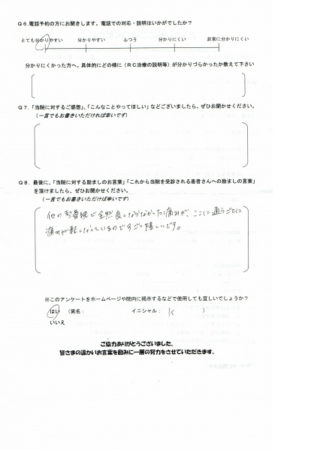 Q6.電話予約の方にお聞きします。電話での対応・説明はいかがでしたか?
とても分かりやすい 分かりやすい ふつう 分かりにくい 非常に分かりにくい
分かりにくかった方へ。具体的にどの様に(RC治療の説明等)が分かりづらかったか教えて下さい
Q7.「当院に対するご感想」、「こんなことやってほしい」などございましたら、ぜひお聞かせください。
(一言でもお書きいただければ幸いです)
Q8.最後に、「当院に対する励ましのお言葉」「これから当院を受診される患者さんへの励ましの言葉」
を頂けましたら、ぜひお聞かせください。
(一言でもお書きいただければ幸いです)
他の整骨院で全然良くならなかった痛みが、ここに通うごとに
痛みが軽くなっているのですごく嬉しいです。
※このアンケートをホームページや院内に掲示するなどで使用しても宜しいでしょうか?
はい (匿名・ イニシャル: K )
いいえ
ご協力ありがとうございました。
皆さまの温かいお言葉を励みに一層の努力をさせていただきます。